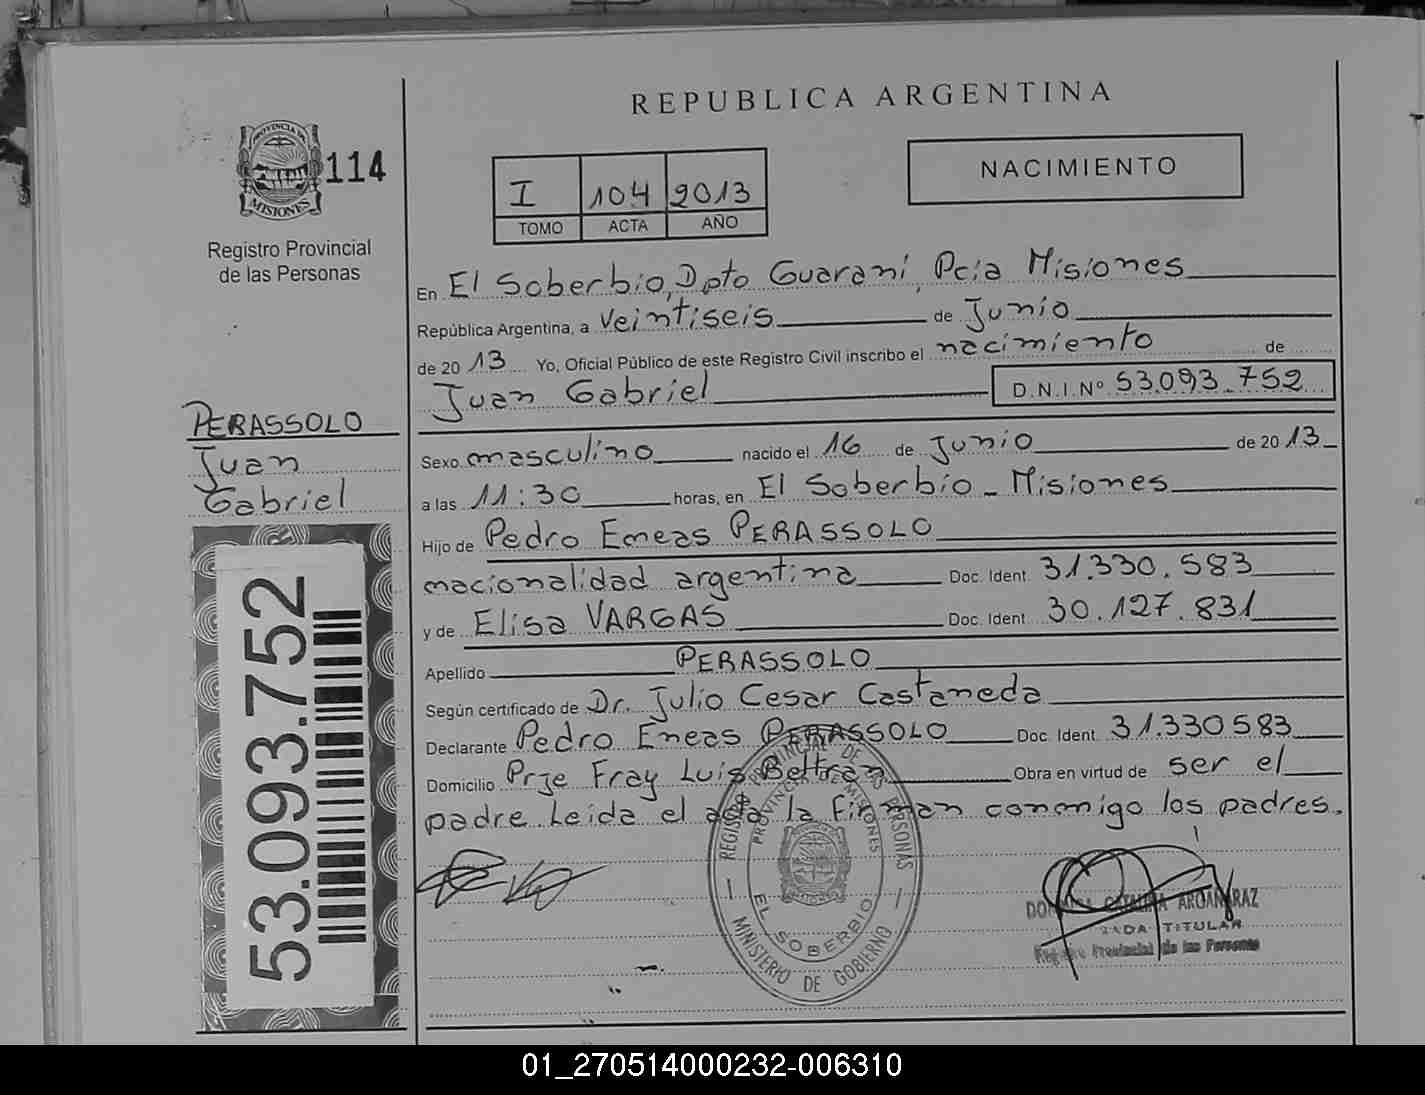 REPUBLICA ARGENTINA
PROVINCIA DE
MISIONES
114
Registro Provincial
de las Personas
I 104 2013
TOMO ACTA AÑO
NACIMIENTO
En El Soberbio, Dpto Guarani, Pcia Misiones
República Argentina, a veintiseis de Junio
de 2013 Yo, Oficial Público de este Registro Civil inscribo el nacimiento de
Juan Gabriel D.N.I.Nº 53.093.752
PERASSOLO
Juan
Gabriel
53.093.752
Sexo masculino nacido el 16 de Junio de 2013
a las 11:30 horas, en El Soberbio - Misiones
Hijo de Pedro Eneas PERASSOLO
nacionalidad argentina Doc. Ident. 31.330.583
y de Elisa VARGAS Doc. Ident. 30.127.831
Apellido PERASSOLO
Según certificado de Dr. Julio Cesar Castaneda
Declarante Pedro Eneas PERASSOLO Doc. Ident. 31.330583
Domicilio Prje Fray Luis Beltran Obra en virtud de ser el
padre. Leida el acta la firman conmigo los padres.
REGISTRO PROVINCIAL DE LAS PERSONAS
PROVINCIA DE MISIONES
EL SOBERBIO
MINISTERIO DE GOBIERNO
TITULAR
Registro Provincial de las Personas
01_270514000232-006310